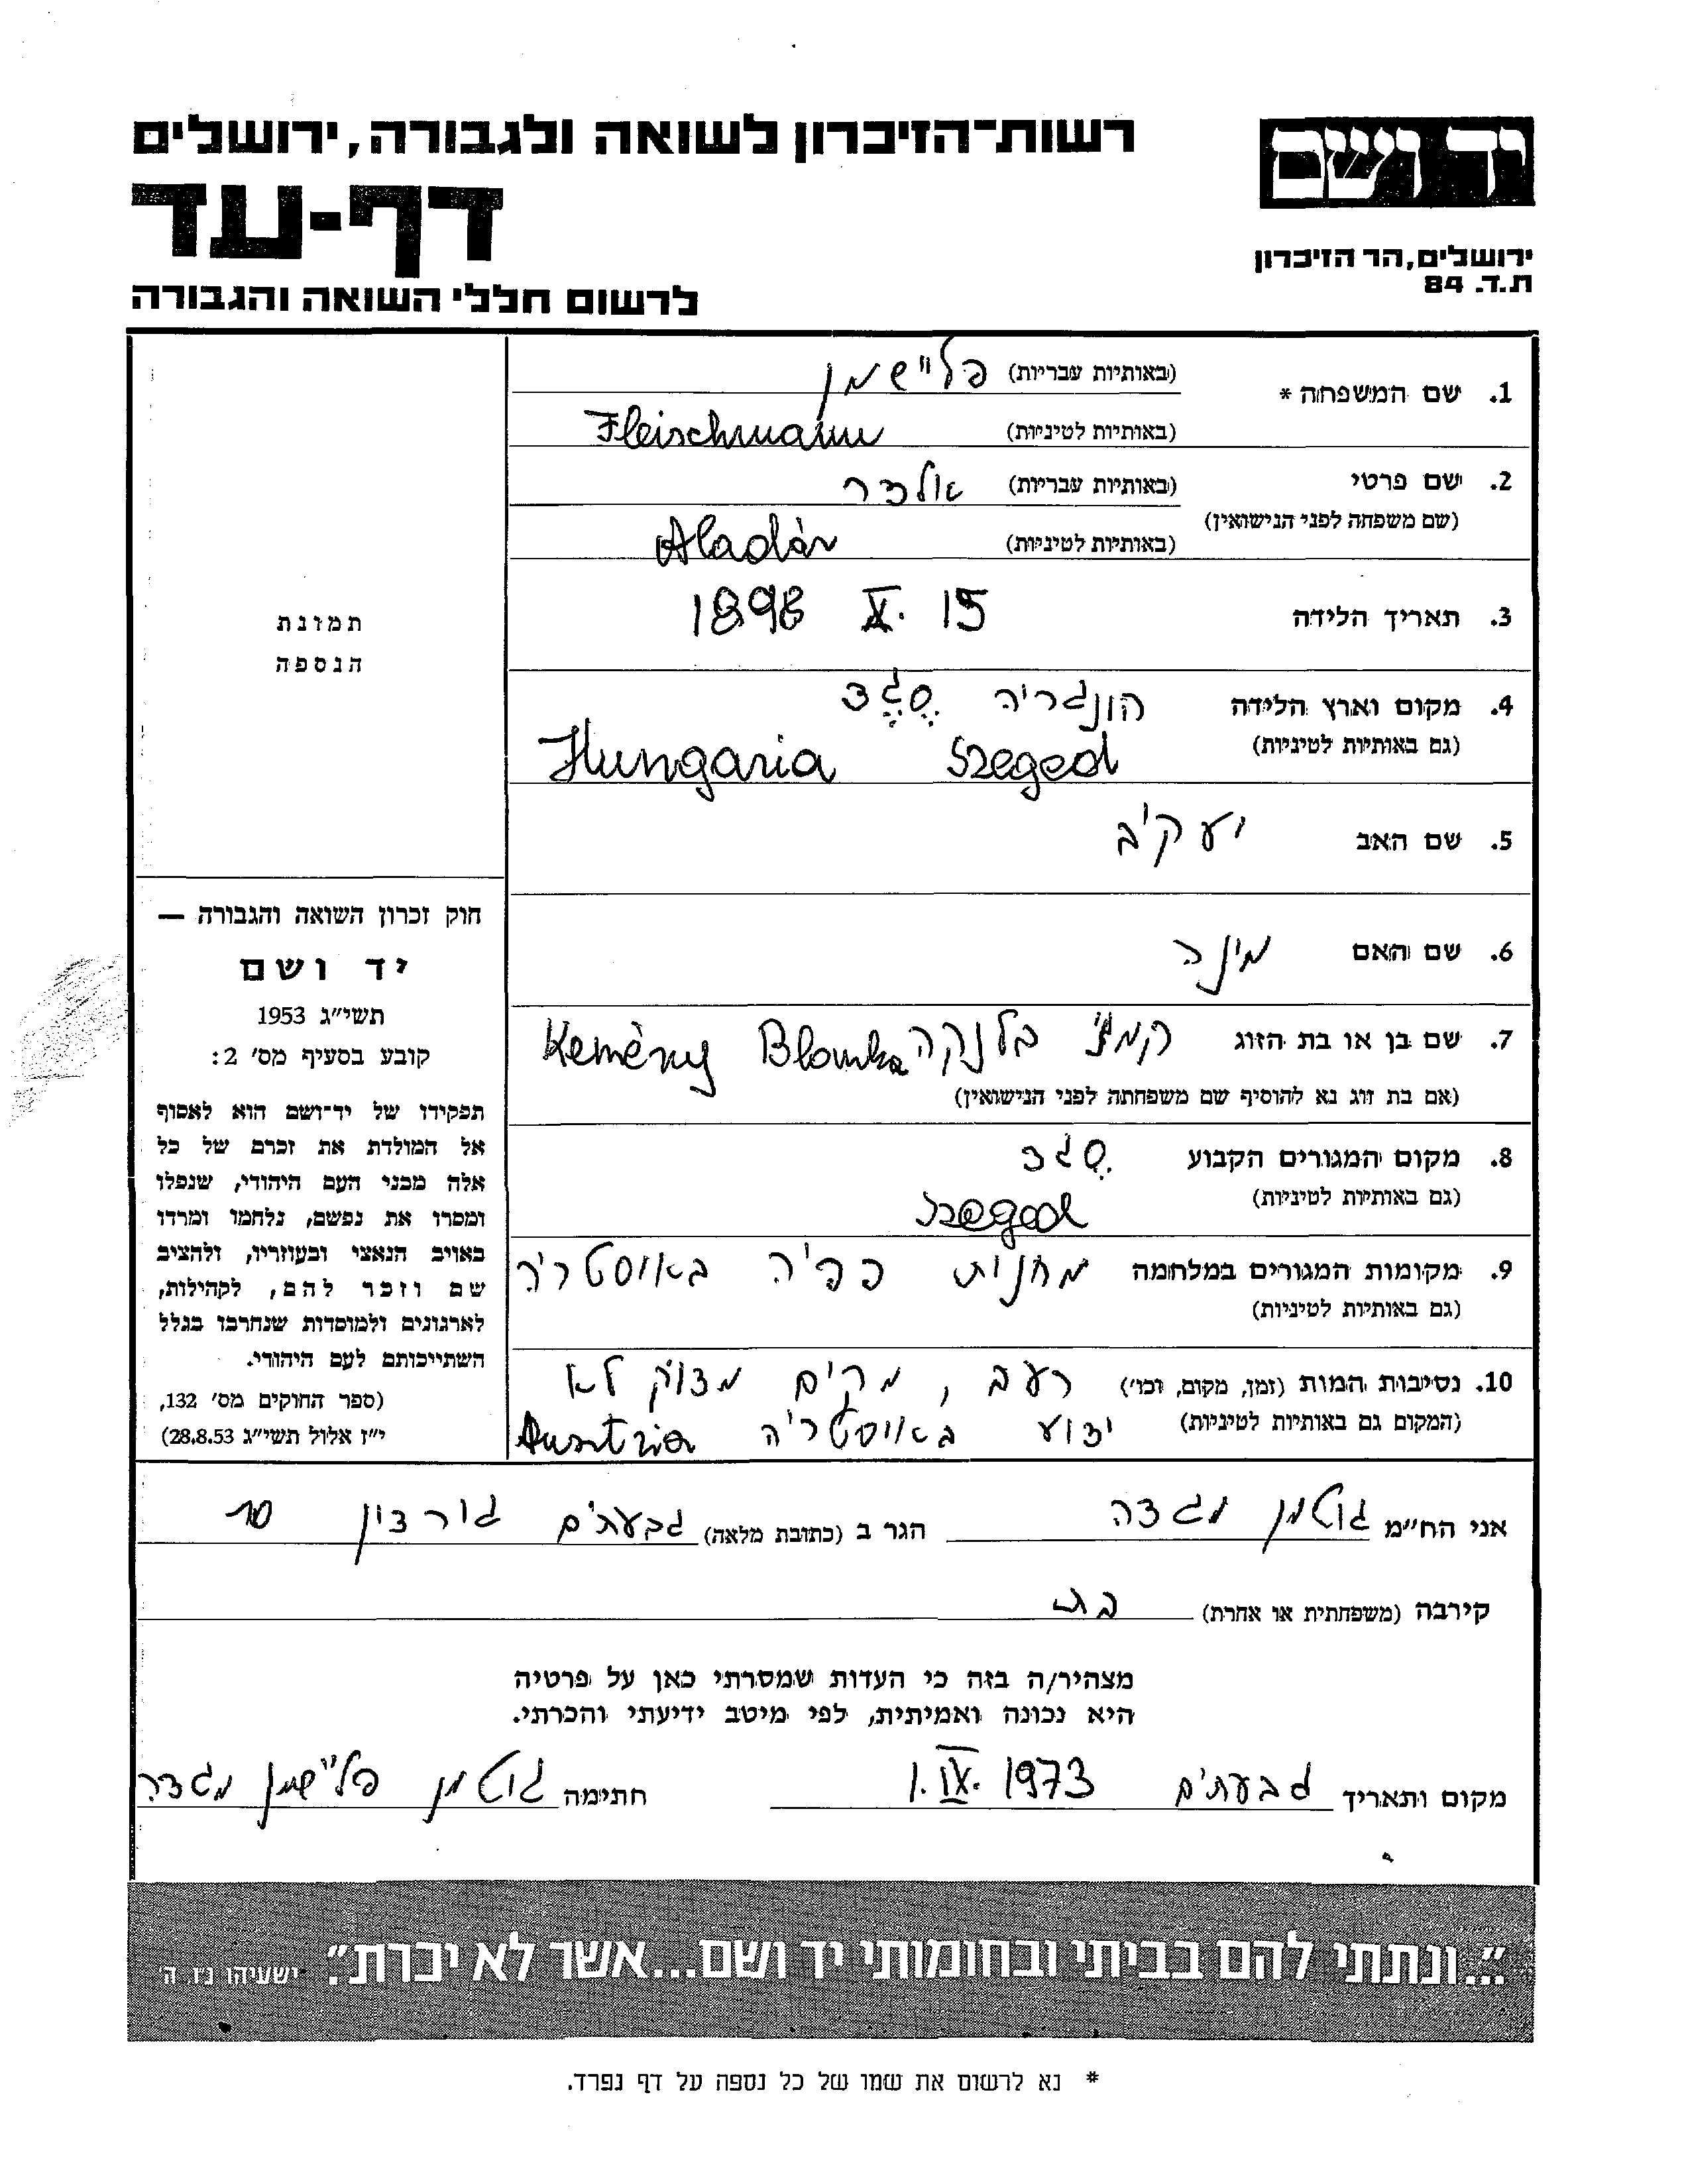 רשות־הזיכרון לשואה ולגבורה, ירושלים
יד ושם
דף-עד
ירושלים, הר הזיכרון
ת.ד. 84
לרשום חללי השואה והגבורה
1. שם המשפחה * (באותיות עבריות) פליישמן
(באותיות לטיניות) Fleischmann
2. שם פרטי (באותיות עבריות) אלדר
(שם משפחה לפני הנישואין)
(באותיות לטיניות) Aladár
3. תאריך הלידה 15 X. 1898
4. מקום וארץ הלידה הונגריה סֶגֶד
(גם באותיות לטיניות) Hungaria Szeged
5. שם האב יעקב
6. שם האם מינה
7. שם בן או בת הזוג בלנקה Kemény Blanka
(אם בת זוג נא להוסיף שם משפחתה לפני הנישואין)
8. מקום המגורים הקבוע סֶגד
(גם באותיות לטיניות) Szeged
9. מקומות המגורים במלחמה מחנות כפיה באוסטריה
(גם באותיות לטיניות)
10. נסיבות המות (זמן, מקום, וכו') רעב, מקום מדויק לא
(המקום גם באותיות לטיניות) ידוע באוסטריה Austria
תמונת
הנספה
חוק זכרון השואה והגבורה —
יד ושם
תשי״ג 1953
קובע בסעיף מס׳ 2:
תפקידו של יד־ושם הוא לאסוף
אל המולדת את זכרם של כל
אלה מבני העם היהודי, שנפלו
ומסרו את נפשם, נלחמו ומרדו
באויב הנאצי ובעוזריו, ולהציב
שם וזכר להם, לקהילות,
לארגונים ולמוסדות שנחרבו בגלל
השתייכותם לעם היהודי.
(ספר החוקים מס׳ 132,
י״ז אלול תשי״ג 28.8.53)
אני הח״מ גוטמן מגדה הגר ב (כתובת מלאה) גבעתים גורדון 10
קירבה (משפחתית או אחרת) בת
מצהיר/ה בזה כי העדות שמסרתי כאן על פרטיה
היא נכונה ואמיתית, לפי מיטב ידיעתי והכרתי.
מקום ותאריך גבעתים 1. IX. 1973 חתימה גוטמן פליישמן מגדה
״...ונתתי להם בביתי ובחומותי יד ושם...אשר לא יכרת״. ישעיהו נ״ו ה׳
* נא לרשום את שמו של כל נספה על דף נפרד.